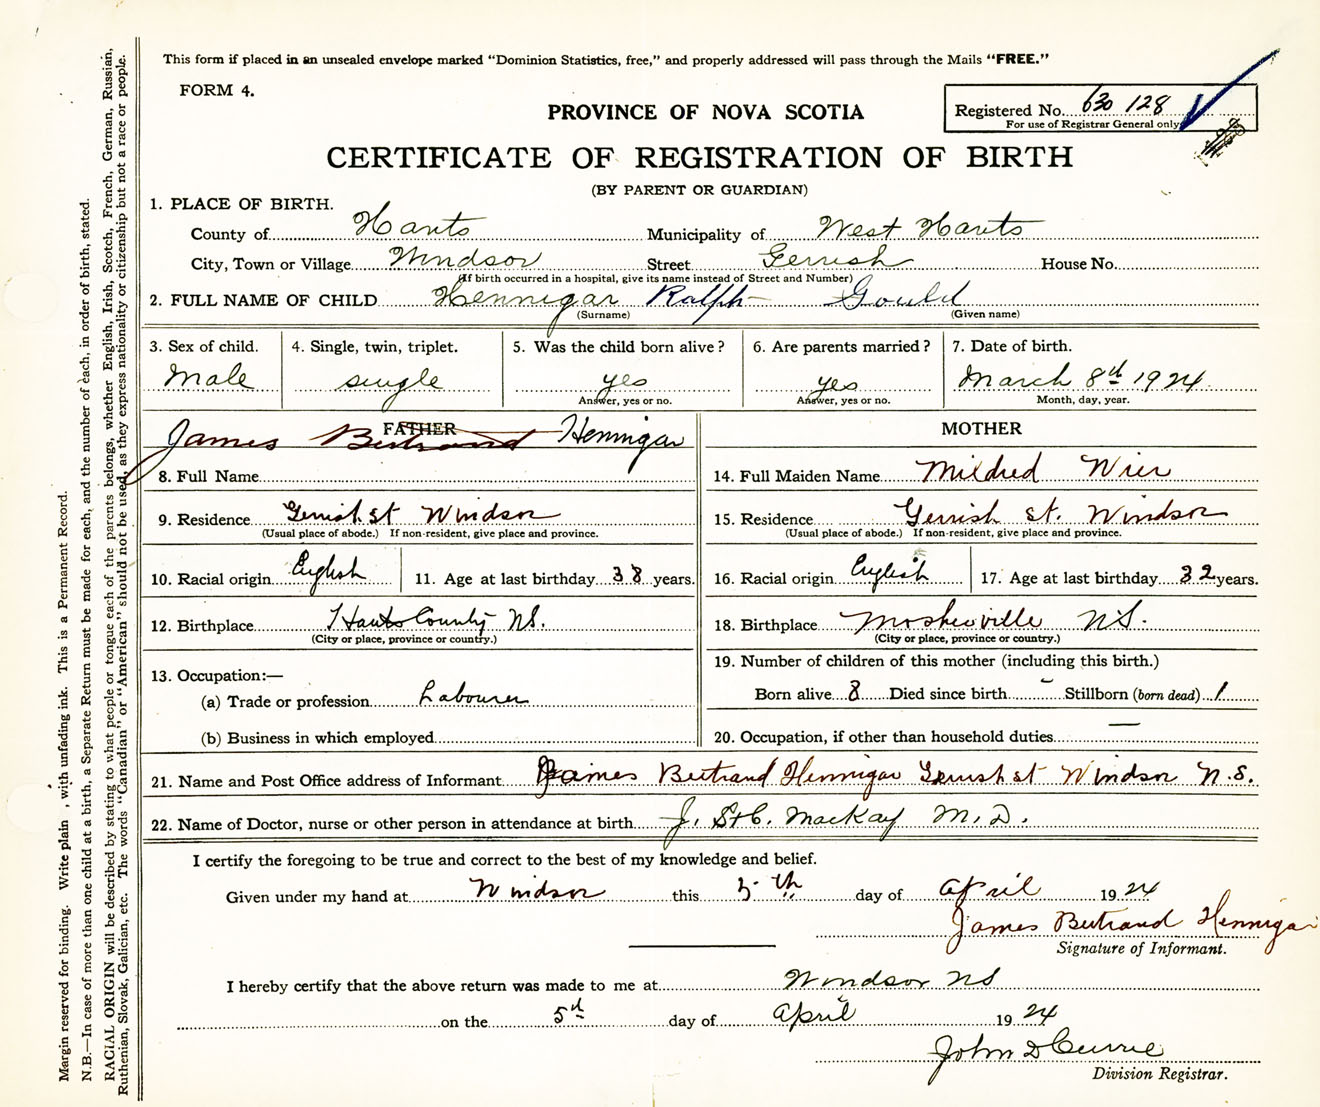 This form if placed in an unsealed envelope marked "Dominion Statistics, free," and properly addressed will pass through the Mails "FREE."
FORM 4.
PROVINCE OF NOVA SCOTIA
Registered No. 630 128
For use of Registrar General only
CERTIFICATE OF REGISTRATION OF BIRTH
(BY PARENT OR GUARDIAN)
1. PLACE OF BIRTH.
County of Hants Municipality of West Hants
City, Town or Village Windsor Street Gerrish House No.
(If birth occurred in a hospital, give its name instead of Street and Number)
2. FULL NAME OF CHILD Hennigar Ralph Gould
(Surname) (Given name)
3. Sex of child. 4. Single, twin, triplet. 5. Was the child born alive? 6. Are parents married? 7. Date of birth.
Male single yes yes March 8th 1924
Answer, yes or no. Answer, yes or no. Month, day, year.
FATHER MOTHER
James Bertrand Hennigar
8. Full Name
14. Full Maiden Name Mildred Wier
9. Residence Gerrish St Windsor
(Usual place of abode.) If non-resident, give place and province.
15. Residence Gerrish St. Windsor
(Usual place of abode.) If non-resident, give place and province.
10. Racial origin English 11. Age at last birthday 38 years.
16. Racial origin English 17. Age at last birthday 32 years.
12. Birthplace Hants County NS.
(City or place, province or country.)
18. Birthplace Mosherville NS.
(City or place, province or country.)
13. Occupation:—
(a) Trade or profession Labourer
(b) Business in which employed
19. Number of children of this mother (including this birth.)
Born alive 8 Died since birth - Stillborn (born dead) 1
20. Occupation, if other than household duties —
21. Name and Post Office address of Informant James Bertrand Hennigar Gerrish st Windsor N.S.
22. Name of Doctor, nurse or other person in attendance at birth J. St C. MacKay M.D.
I certify the foregoing to be true and correct to the best of my knowledge and belief.
Given under my hand at Windsor this 5th day of April 1924
James Bertrand Hennigar
Signature of Informant.
I hereby certify that the above return was made to me at Windsor NS
on the 5th day of April 1924
John D Currie
Division Registrar.
Margin reserved for binding. Write plain , with unfading ink. This is a Permanent Record.
N.B.—In case of more than one child at a birth, a Separate Return must be made for each, and the number of each, in order of birth, stated.
RACIAL ORIGIN will be described by stating to what people or tongue each of the parents belongs, whether English, Irish, Scotch, French, German, Russian,
Ruthenian, Slovak, Galician, etc. The words "Canadian" or "American" should not be used, as they express nationality or citizenship but not a race or people.